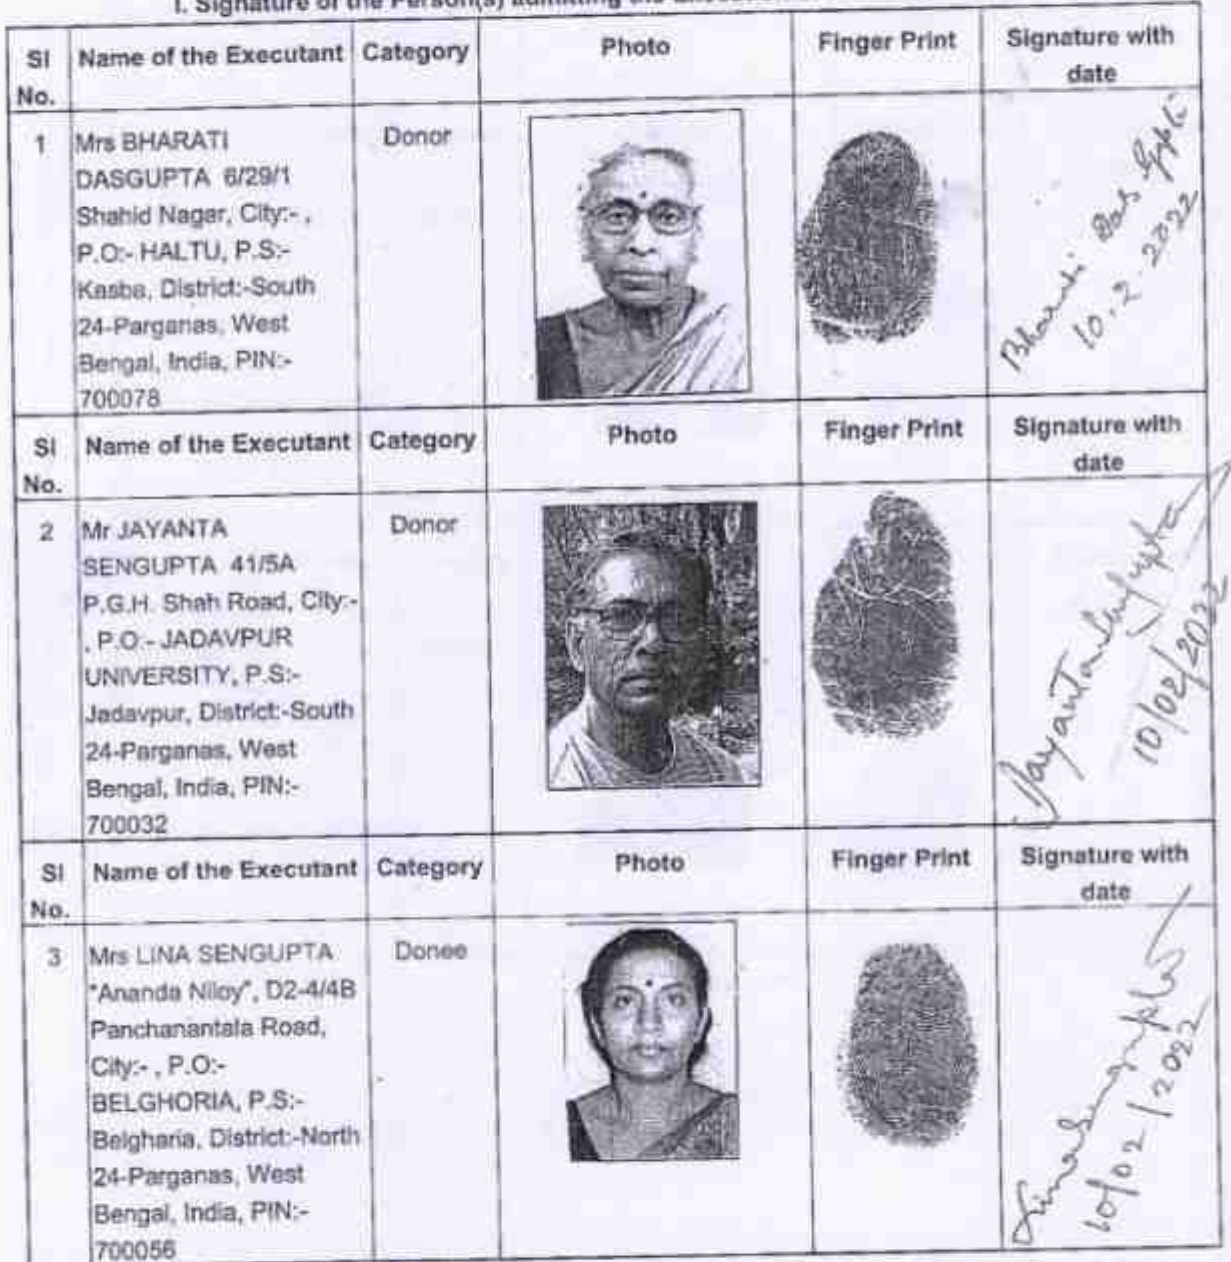 I. Signature of the Person(s) admitting the Execution
Sl No. Name of the Executant Category Photo Finger Print Signature with date
1 Mrs BHARATI Donor
DASGUPTA 6/29/1
Shahid Nagar, City:- ,
P.O:- HALTU, P.S:-
Kasba, District:-South
24-Parganas, West
Bengal, India, PIN:-
700078
Bharati Das Gupta
10.2.2022
Sl No. Name of the Executant Category Photo Finger Print Signature with date
2 Mr JAYANTA Donor
SENGUPTA 41/5A
P.G.H. Shah Road, City:-
, P.O:- JADAVPUR
UNIVERSITY, P.S:-
Jadavpur, District:-South
24-Parganas, West
Bengal, India, PIN:-
700032
Jayanta Sengupta
10/02/2022
Sl No. Name of the Executant Category Photo Finger Print Signature with date
3 Mrs LINA SENGUPTA Donee
"Ananda Niloy", D2-4/4B
Panchanantala Road,
City:- , P.O:-
BELGHORIA, P.S:-
Belgharia, District:-North
24-Parganas, West
Bengal, India, PIN:-
700056
Lina Sengupta
10/02/2022